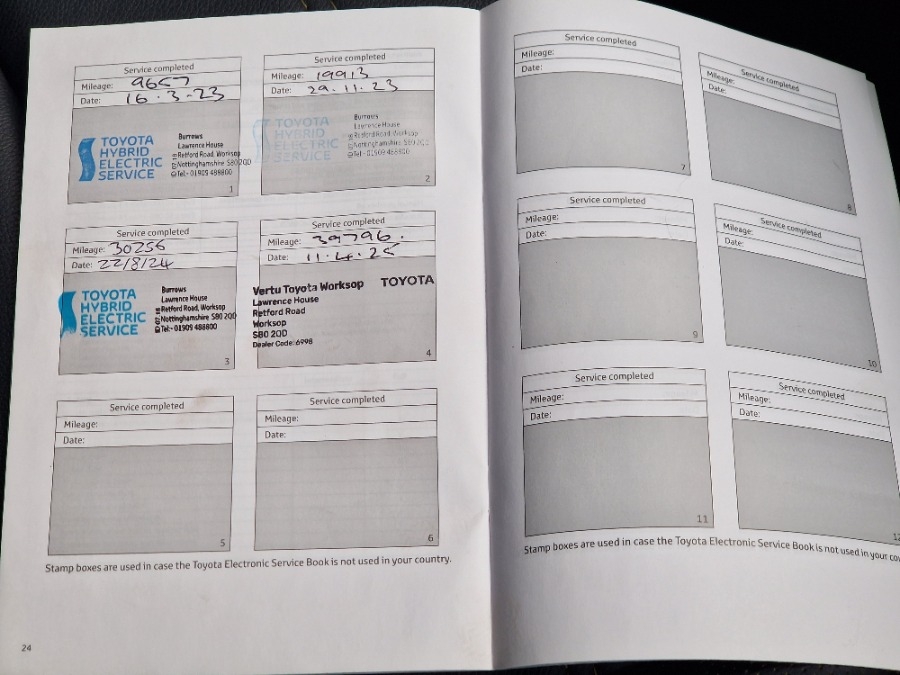 Service completed
Mileage: 9657
Date: 16.3-23
TOYOTA
HYBRID
ELECTRIC
SERVICE
Burrows
Lawrence House
Retford Road, Worksop
Nottinghamshire S80 2QD
Tel:- 01909 488800
1
Service completed
Mileage: 19913
Date: 29.11.23
TOYOTA
HYBRID
ELECTRIC
SERVICE
Burrows
Lawrence House
Retford Road, Worksop
Nottinghamshire S80 2QD
Tel:- 01909 488800
2
Service completed
Mileage: 30256
Date: 22/8/24
TOYOTA
HYBRID
ELECTRIC
SERVICE
Burrows
Lawrence House
Retford Road, Worksop
Nottinghamshire S80 2QD
Tel:- 01909 488800
3
Service completed
Mileage: 39796.
Date: 11.4.25
Vertu Toyota Worksop TOYOTA
Lawrence House
Retford Road
Worksop
S80 2QD
Dealer Code: 6998
4
Service completed
Mileage:
Date:
5
Service completed
Mileage:
Date:
6
Stamp boxes are used in case the Toyota Electronic Service Book is not used in your country.
24
Service completed
Mileage:
Date:
7
Service completed
Mileage:
Date:
8
Service completed
Mileage:
Date:
9
Service completed
Mileage:
Date:
10
Service completed
Mileage:
Date:
11
Service completed
Mileage:
Date:
Stamp boxes are used in case the Toyota Electronic Service Book is not used in your